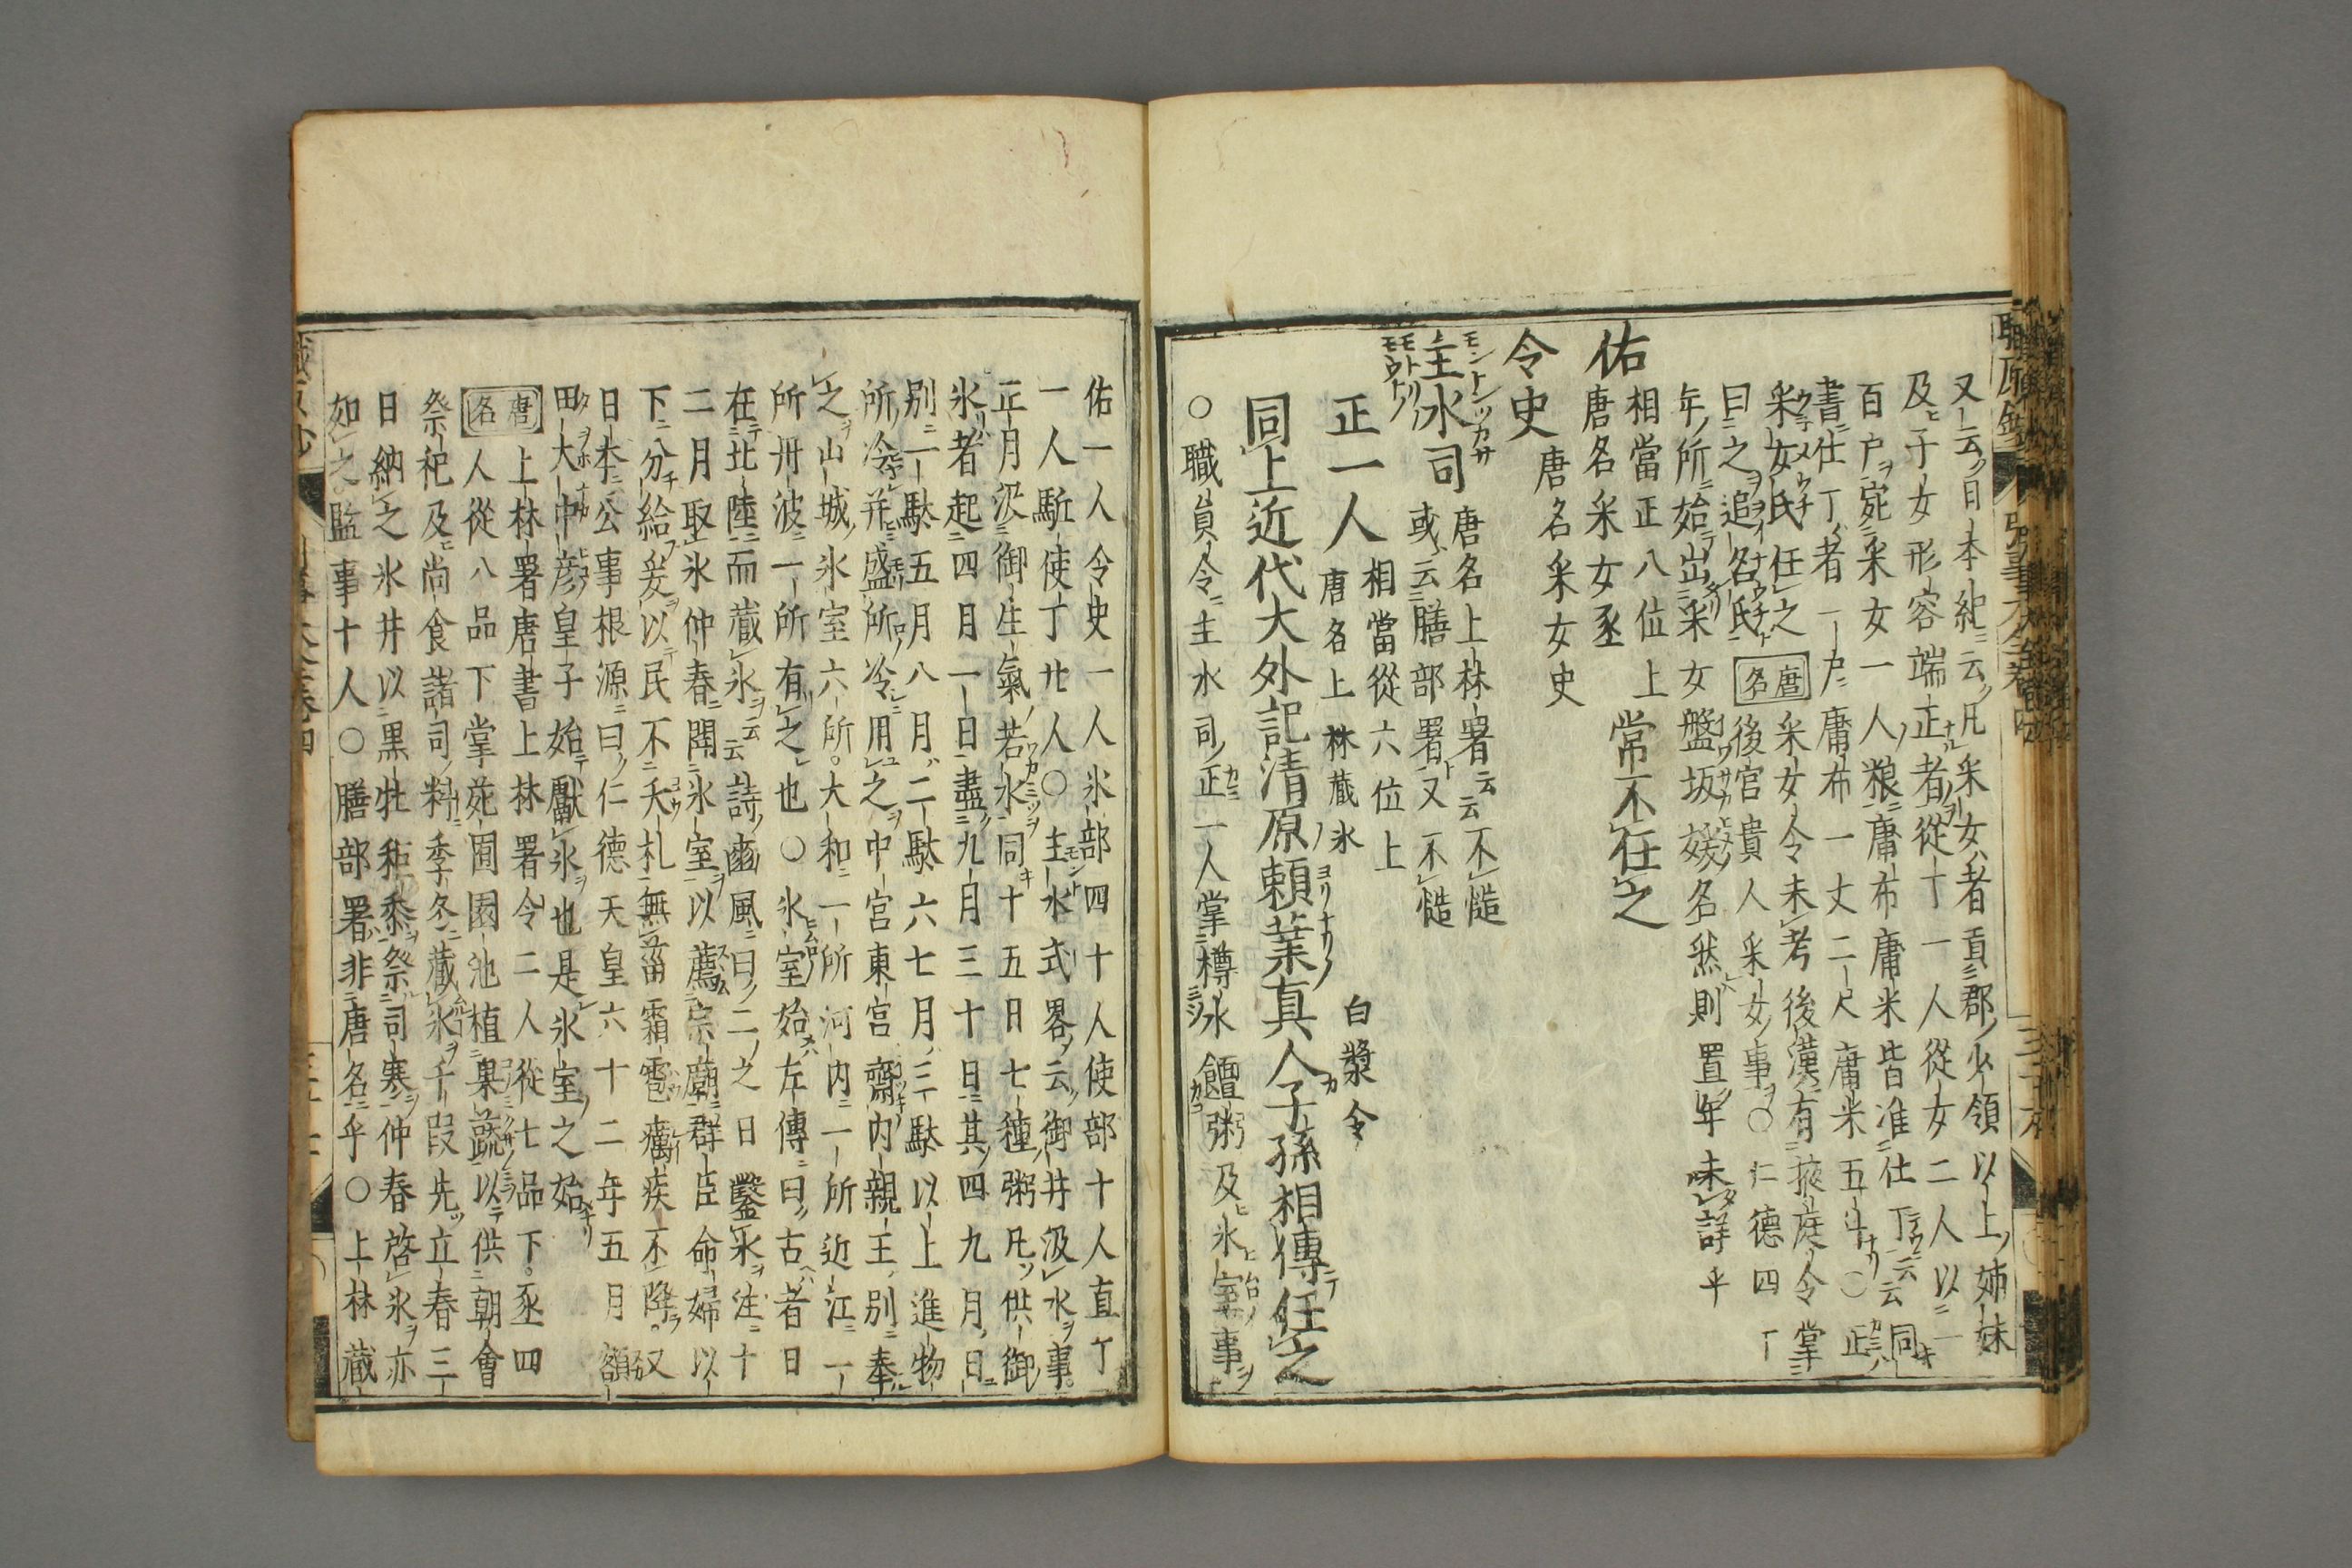 又云日本紀云凡采女者貢郡少領以上姉妹
及子女形容端正者從丁一人從女二人以一
百戸宛采女一人粮庸布庸米皆准仕丁云云同
書仕丁者一戸庸布一丈二尺庸米五斗○正
采女氏任之唐名采女令未考後漢有掖庭令掌
後官貴人采女事○仁德四十
年所始出采女盤坂媛名然則置年未詳乎
曰之追名氏
相當正八位上
佑 常不任之
唐名采女丞
令史
唐名采女史
主水司 唐名上林署云云不慥
或云膳部署又不慥
正一人 相當從六位上
唐名上林藏氷 白漿令
同上近代大外記清原頼業真人子孫相傳任之
○職員令主水司正一人掌樽水饘粥及氷室事
佑一人令史一人氷部四十人使部十人直丁
一人駈使丁廿人○主水式畧云御井汲水事
正月汲御生氣若水同十五日七種粥凡供御
氷者起四月一日盡九月三十日其四九月日
別一駄五月八月二駄六七月三駄以上進物
所冷并盛所冷用之中宮東宮齋内親王別奉
之山城氷室六所大和一所河内一所近江一
所丹波一所有之也○氷室始左傳曰古者日
在北陸而藏氷云云詩豳風曰二之日鑿氷注十
二月取氷仲春開氷室以薦宗廟群臣命婦以
下分給爰以民不夭札無菑霜雹癘疾不降又
日本公事根源曰仁德天皇六十二年五月額
田大中彦皇子始獻氷也是氷室之始
上林署唐書上林署令二人從七品下丞四
唐名人從八品下掌苑囿園池植果蔬以供朝會
祭祀及尚食諸司料季冬藏氷千段先立春三
日納之氷井以黒牡秬黍祭司寒仲春啓氷亦
如之監事十人○膳部署非唐名乎○上林藏